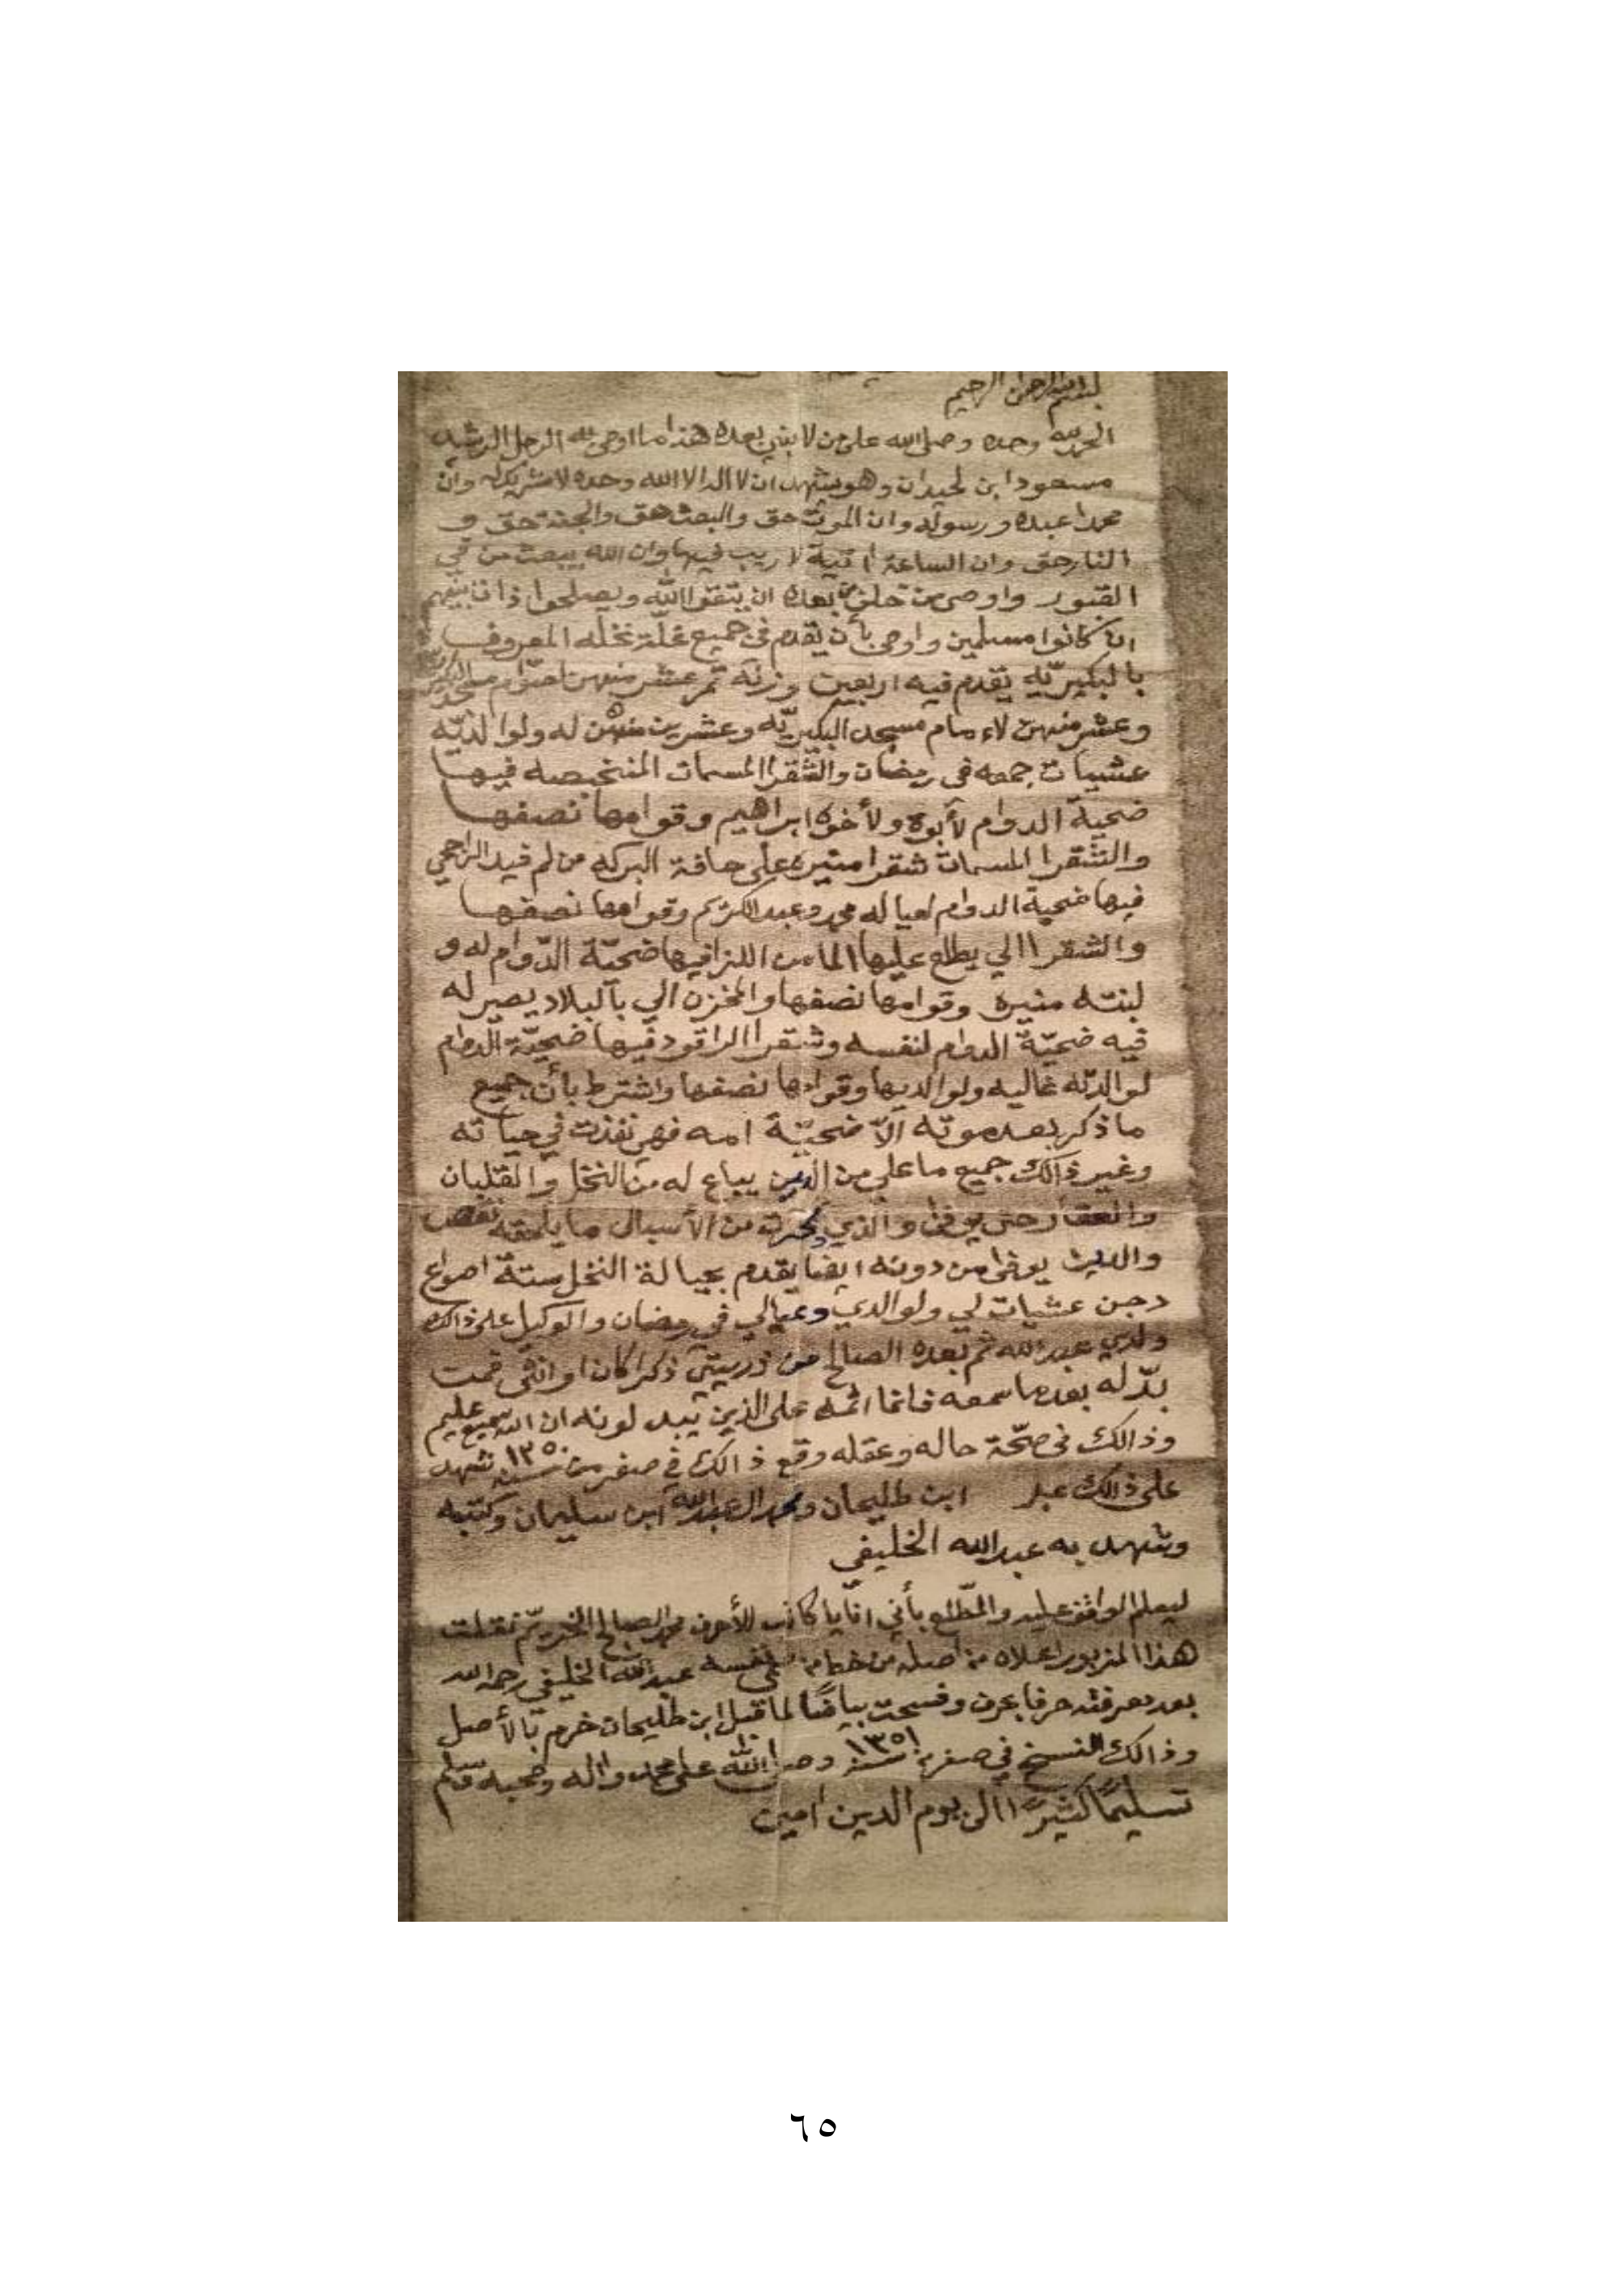 بسم الله الرحمن الرحيم
الحمد لله وحده وصلى الله على من لا نبي بعده هذا ما اوصى به الرجل الرشيد
مسعود ابن لحيدان وهو يشهد ان لا اله الا الله وحده لا شريك له وان
محمدا عبده ورسوله وان الموت حق والبعث حق والجنة حق و
النار حق وان الساعة اتية لا ريب فيها وان الله يبعث من في
القبور واوصى من خلف بعده ان يتقوا الله ويصلحوا ذات بينهم
ان كانوا مسلمين واوصى بأن يقدم في جميع غلة نخله المعروف
بالبكيريّه يقدم فيه اربعين وزنة تمر عشر منهن لصوّام مسجد
وعشر منهن لاءمام مسجد البكيريّه وعشرين منهن له ولوالديّه
عشيات جمعه في رمضان والشقرا المسمات فيها
ضحية الدوام لأبوه ولأخوه ابراهيم وقوامها نصفها
والشقرا المسمات شقرا منيره على حافة البركه من
فيها ضحية الدوام لعياله محمد وعبد الكريم وقوامها نصفها
والشقرا الي يطلع عليها الما من اللزا فيها ضحيّة الدّوام له و
لبنته منيره وقوامها نصفها والمخزن الي بالبلاد يصير له
فيه ضحيّة الدوام لنفسه وشقرا الراقود فيها ضحيّة الدوام
لوالدته غاليه ولوالديها وقوامها نصفها واشترط بأن جميع
ما ذكر بعد موته الاّ ضحيّة امه فهي نفذت في حياته
وغير ذالك جميع ما علي من الدين يباع له من النخل والقلبان
والعقار حتى يوفى والذي من الأسبال ما يلحقه نقص
والدين يوفى من دونه ايضا يقدم بجبالة النخل ستة اصواع
دجن عشيات لي ولوالدي وعيالي في رمضان والوكيل على ذالك
ولدي عبد الله ثم بعده الصالح من ذريتي ذكرا كان او انثى فمن
بدّله بعد ما سمعه فانما اثمه على الذين يبدلونه ان الله سميع عليم
وذالك في صحّة حاله وعقله وقع ذالك في صفر من سنة ١٣٥٠ شهد
على ذالك عبد ابن طليحان ومحمد ال عبد الله ابن سليمان وكتبه
وشهد به عبد الله الخليفي
ليعلم الواقف عليه والمطّلع بأني انا يا كاتب الأحرف محمد الصالح نقلت
هذا المزبور اعلاه من اصله من خط نفسه عبد الله الخليفي رحمه الله
بعد معرفته حرفا بحرف وفسحت بياضًا لما قبل ابن طليحان خرم بالأصل
وذالك النسخ في صفر سنة ١٣٥١ وصلى الله على محمد واله وصحبه وسلم
تسليمًا كثيرًا الى يوم الدين امين
٦٥